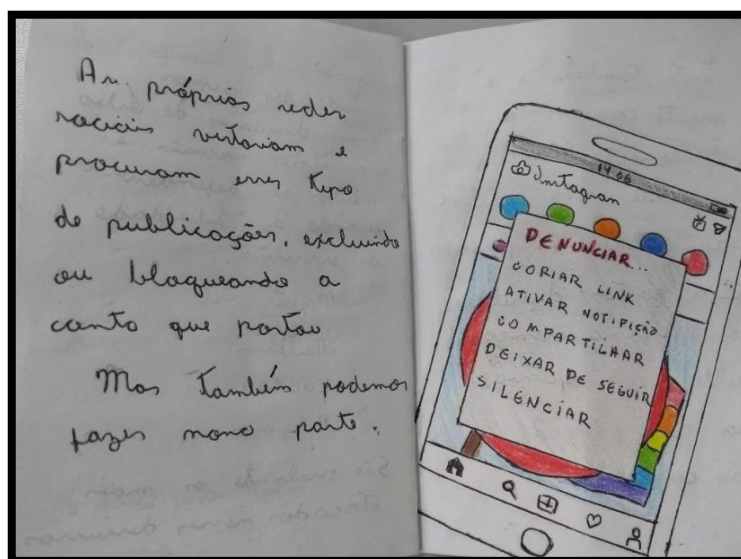 As próprias redes
sociais vistoriam e
procuram esses tipo
de publicações, excluindo
ou bloqueando a
conta que postou
Mas também podemos
fazer nossa parte.
14:06
Instagram
DENUNCIAR...
COPIAR LINK
ATIVAR NOTIFIÇÃO
COMPARTILHAR
DEIXAR DE SEGUIR
SILENCIAR